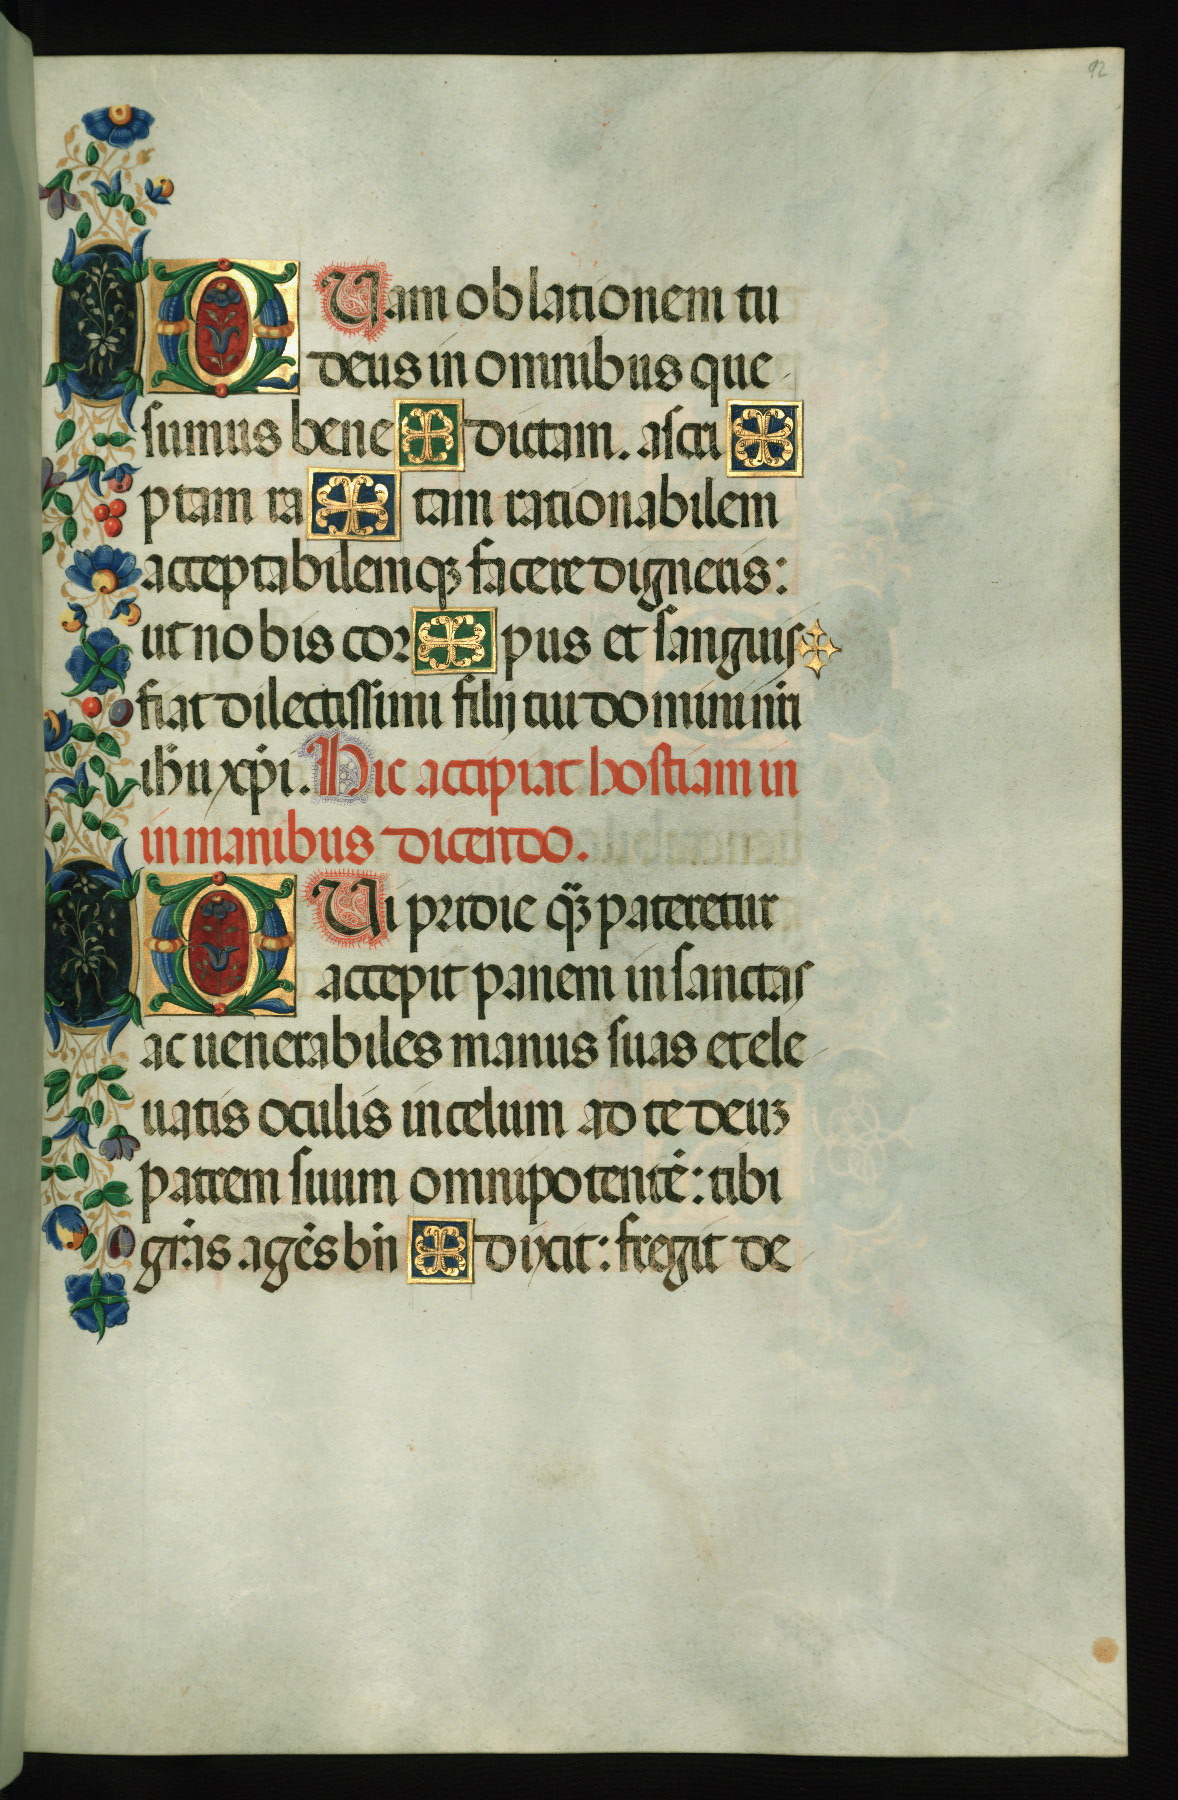 92
QUam oblationem tu
deus in omnibus que
sumus bene ✠ dictam. ascri ✠
ptam ra ✠ tam rationabilem
acceptabilemqꝫ facere digneris:
ut nobis cor ✠ pus et sanguis ✠
fiat dilectissimi filij tui domini nr̄i
ihū xp̄i. Hic accipiat hostiam in
in manibus dicendo.
QUi pridie qꝫ pateretur
accepit panem in sanctas
ac uenerabiles manus suas et ele
uatis oculis in celum ad te deuꝫ
patrem suum omnipotentē: tibi
gr̄as agēs bn̄ ✠ dixit: fregit de